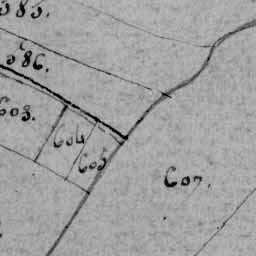 585.
586.
603.
604
605
607.